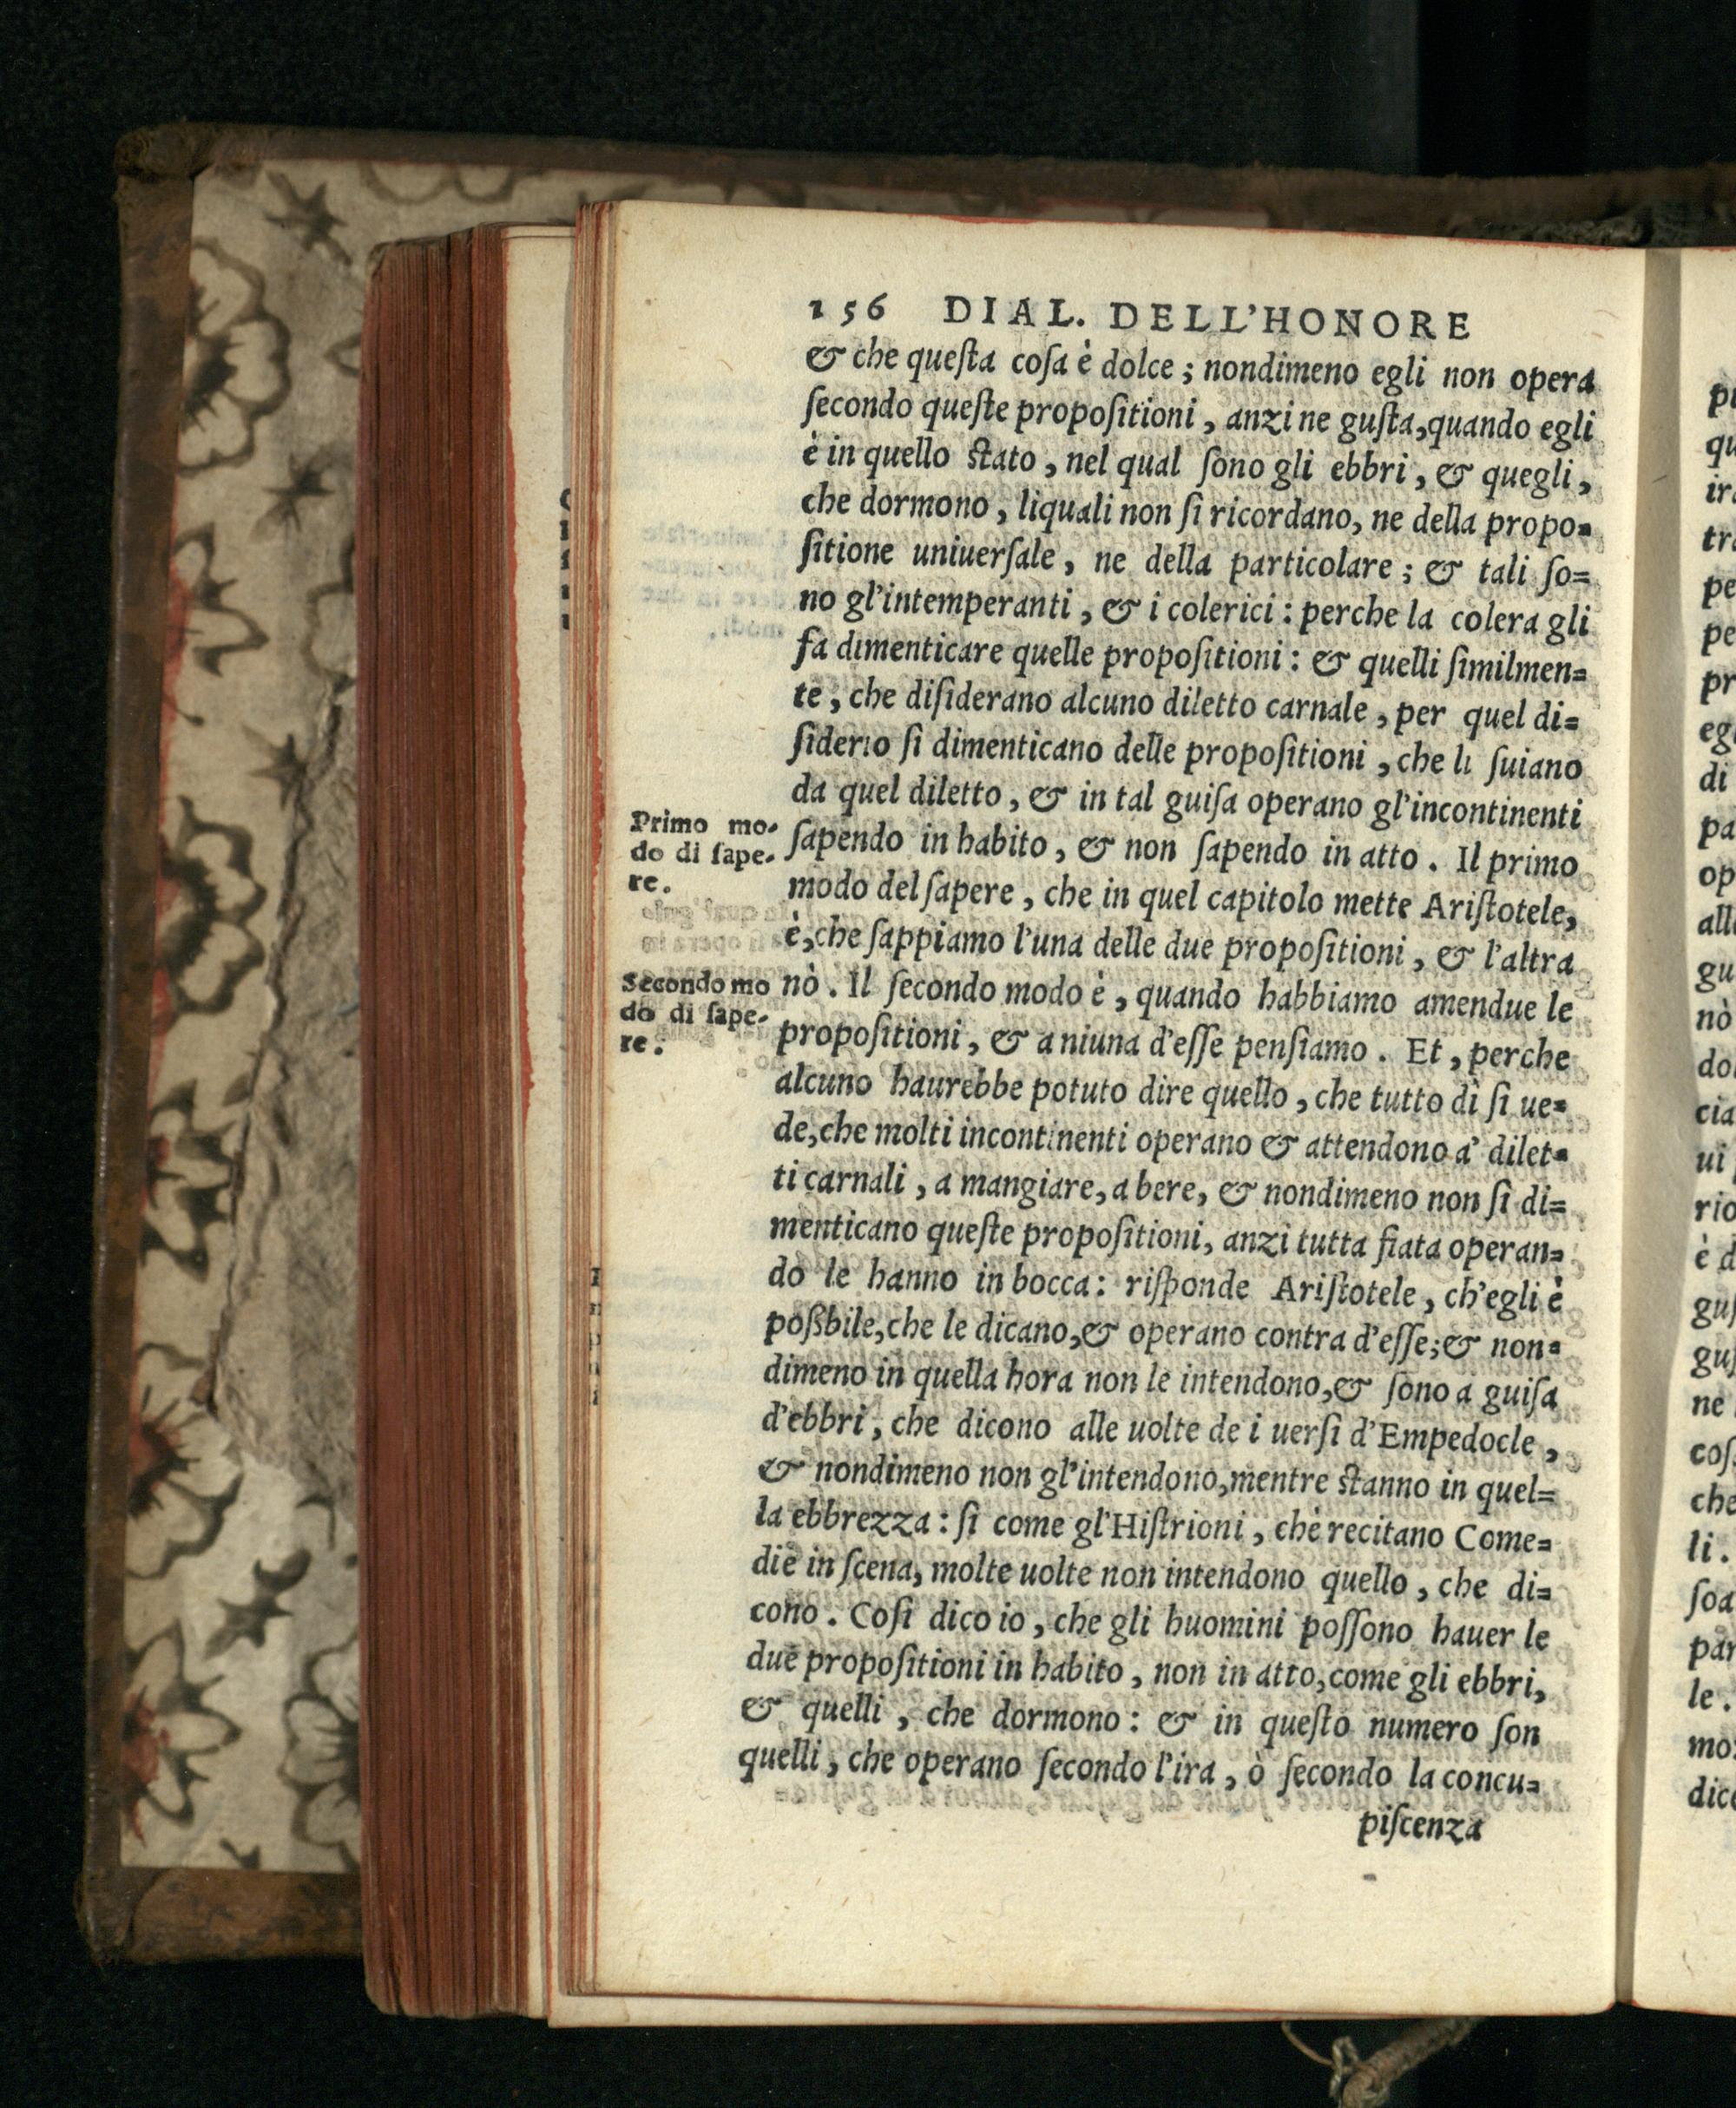 156 DIAL. DELL'HONORE
& che queſta coſa è dolce; nondimeno egli non opera
ſecondo queſte propoſitioni, anzi ne guſta, quando egli
è in quello ſtato, nel qual ſono gli ebbri, & quegli,
che dormono, liquali non ſi ricordano, ne della propo=
ſitione uniuerſale, ne della particolare; & tali ſo=
no gl'intemperanti, & i colerici: perche la colera gli
fa dimenticare quelle propoſitioni: & quelli ſimilmen=
te, che diſiderano alcuno diletto carnale, per quel di=
ſiderio ſi dimenticano delle propoſitioni, che li ſuiano
da quel diletto, & in tal guiſa operano gl'incontinenti
Primo mo-
do di ſape-
re.
ſapendo in habito, & non ſapendo in atto. Il primo
modo del ſapere, che in quel capitolo mette Ariſtotele,
è, che ſappiamo l'una delle due propoſitioni, & l'altra
Secondo mo
do di ſape-
re.
nò. Il ſecondo modo è, quando habbiamo amendue le
propoſitioni, & a niuna d'eſſe penſiamo. Et, perche
alcuno haurebbe potuto dire quello, che tutto dì ſi ue=
de, che molti incontinenti operano & attendono a' dilet=
ti carnali, a mangiare, a bere, & nondimeno non ſi di=
menticano queſte propoſitioni, anzi tutta fiata operan=
do le hanno in bocca: riſponde Ariſtotele, ch'egli è
poßbile, che le dicano, & operano contra d'eſſe; & non=
dimeno in quella hora non le intendono, & ſono a guiſa
d'ebbri, che dicono alle uolte de i uerſi d'Empedocle,
& nondimeno non gl'intendono, mentre ſtanno in quel=
la ebbrezza: ſi come gl'Hiſtrioni, che recitano Come=
die in ſcena, molte uolte non intendono quello, che di=
cono. Coſi dico io, che gli huomini poſſono hauer le
due propoſitioni in habito, non in atto, come gli ebbri,
& quelli, che dormono: & in queſto numero ſon
quelli, che operano ſecondo l'ira, ò ſecondo la concu=
piſcenza